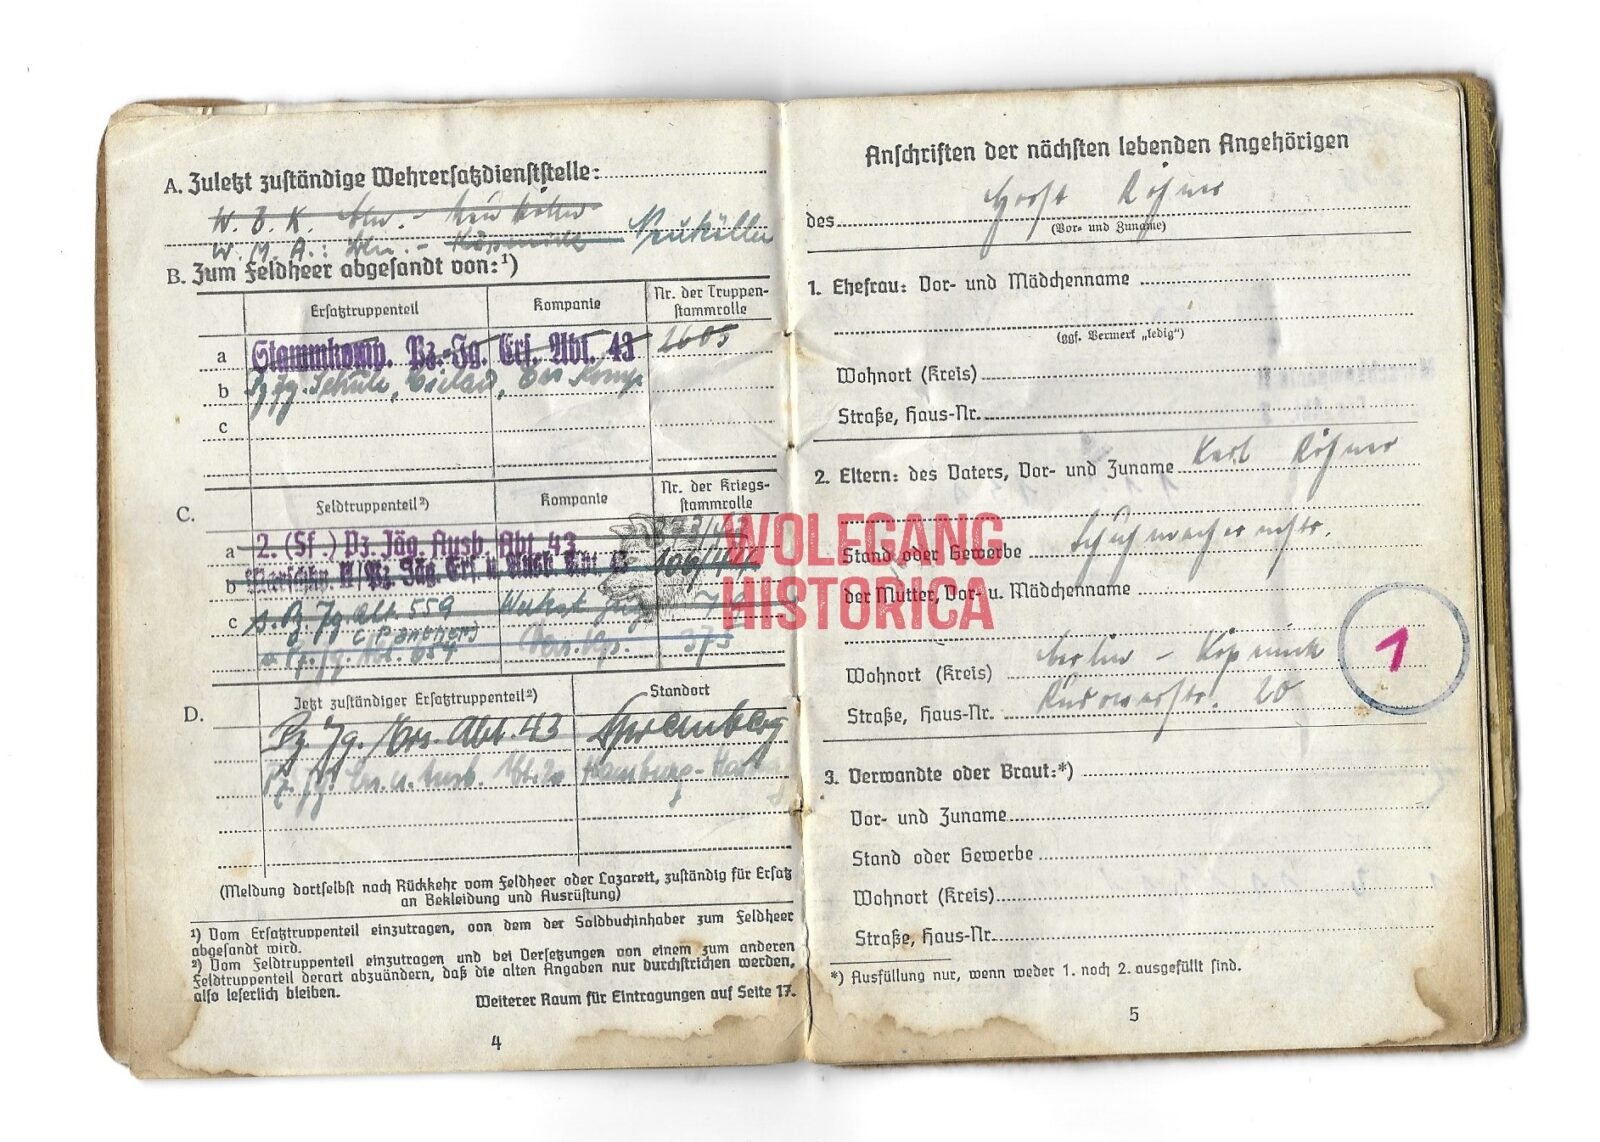 A. Zuletzt zuständige Wehrersatzdienststelle:
W. B. K. Bln. - Neukölln
W. M. A.: Bln. - Köpenick Neukölln
B. Zum Feldheer abgesandt von:¹)
Ersatztruppenteil Kompanie Nr. der Truppen-
stammrolle
a Stammkomp. Pz.-Jg. Ers. Abt. 43 2605
b Pz. Jg. Schule, Komp
c
C.
Feldtruppenteil²) Kompanie Nr. der Kriegs-
stammrolle
a 2. (Sf.) Pz. Jäg. Ausb. Abt. 43
b Marschkp. II/Pz. Jäg. Ers. u. Ausb. Abt. 43 106/44
c s. Pz. Jg. Abt. 559
(Panther)
Pz. Jg. Abt. 654 Vers. Kp. 373
D.
Jetzt zuständiger Ersatztruppenteil²) Standort
Pz. Jg. Ers. Abt. 43 Spremberg
Pz. Jg. Ers. u. Ausb. Abt. 20 Hamburg - Harburg
(Meldung dortselbst nach Rückkehr vom Feldheer oder Lazarett, zuständig für Ersatz
an Bekleidung und Ausrüstung)
¹) Vom Ersatztruppenteil einzutragen, von dem der Soldbuchinhaber zum Feldheer
abgesandt wird.
²) Vom Feldtruppenteil einzutragen und bei Versetzungen von einem zum anderen
Feldtruppenteil derart abzuändern, daß die alten Angaben nur durchstrichen werden,
also leserlich bleiben.
Weiterer Raum für Eintragungen auf Seite 17.
4
Anschriften der nächsten lebenden Angehörigen
des Horst Röhner
(Vor- und Zuname)
1. Ehefrau: Vor- und Mädchenname
(ggf. Vermerk „ledig“)
Wohnort (Kreis)
Straße, Haus-Nr.
2. Eltern: des Vaters, Vor- und Zuname Karl Röhner
Stand oder Gewerbe Schuhmachermstr.
der Mutter, Vor- u. Mädchenname
Wohnort (Kreis) Berlin - Köpenick
Straße, Haus-Nr. Rudowerstr. 20
1
3. Verwandte oder Braut:*)
Vor- und Zuname
Stand oder Gewerbe
Wohnort (Kreis)
Straße, Haus-Nr.
*) Ausfüllung nur, wenn weder 1. noch 2. ausgefüllt sind.
5
WOLFGANG
HISTORICA